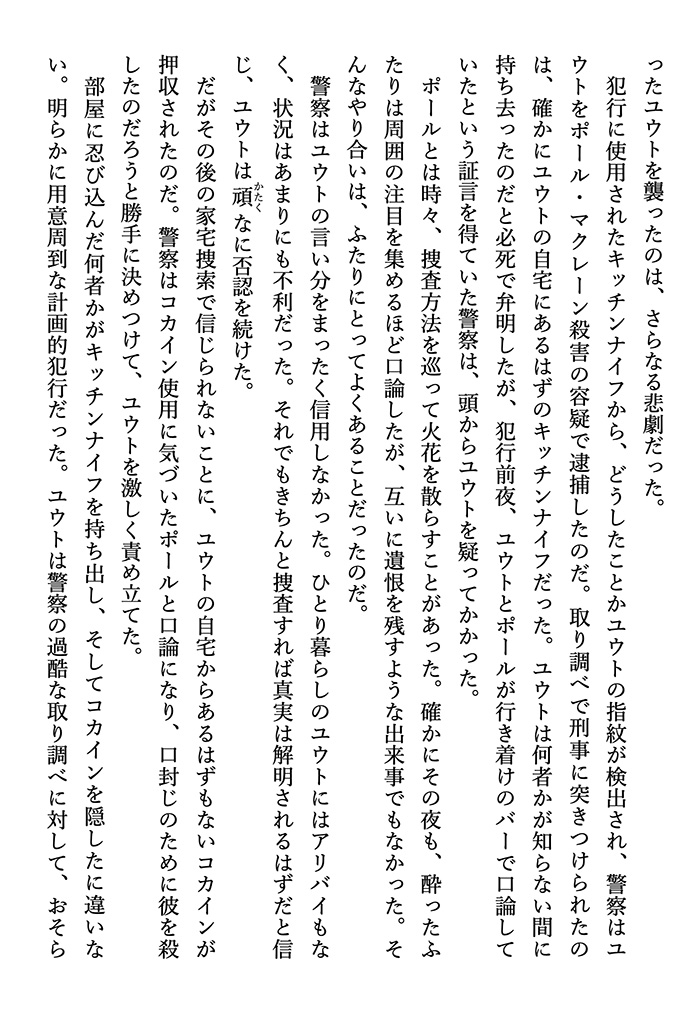 ったユウトを襲ったのは、さらなる悲劇だった。
犯行に使用されたキッチンナイフから、どうしたことかユウトの指紋が検出され、警察はユ
ウトをポール・マクレーン殺害の容疑で逮捕したのだ。取り調べで刑事に突きつけられたの
は、確かにユウトの自宅にあるはずのキッチンナイフだった。ユウトは何者かが知らない間に
持ち去ったのだと必死で弁明したが、犯行前夜、ユウトとポールが行き着けのバーで口論して
いたという証言を得ていた警察は、頭からユウトを疑ってかかった。
ポールとは時々、捜査方法を巡って火花を散らすことがあった。確かにその夜も、酔ったふ
たりは周囲の注目を集めるほど口論したが、互いに遺恨を残すような出来事でもなかった。そ
んなやり合いは、ふたりにとってよくあることだったのだ。
警察はユウトの言い分をまったく信用しなかった。ひとり暮らしのユウトにはアリバイもな
く、状況はあまりにも不利だった。それでもきちんと捜査すれば真実は解明されるはずだと信
じ、ユウトは頑かたくなに否認を続けた。
だがその後の家宅捜索で信じられないことに、ユウトの自宅からあるはずもないコカインが
押収されたのだ。警察はコカイン使用に気づいたポールと口論になり、口封じのために彼を殺
したのだろうと勝手に決めつけて、ユウトを激しく責め立てた。
部屋に忍び込んだ何者かがキッチンナイフを持ち出し、そしてコカインを隠したに違いな
い。明らかに用意周到な計画的犯行だった。ユウトは警察の過酷な取り調べに対して、おそら